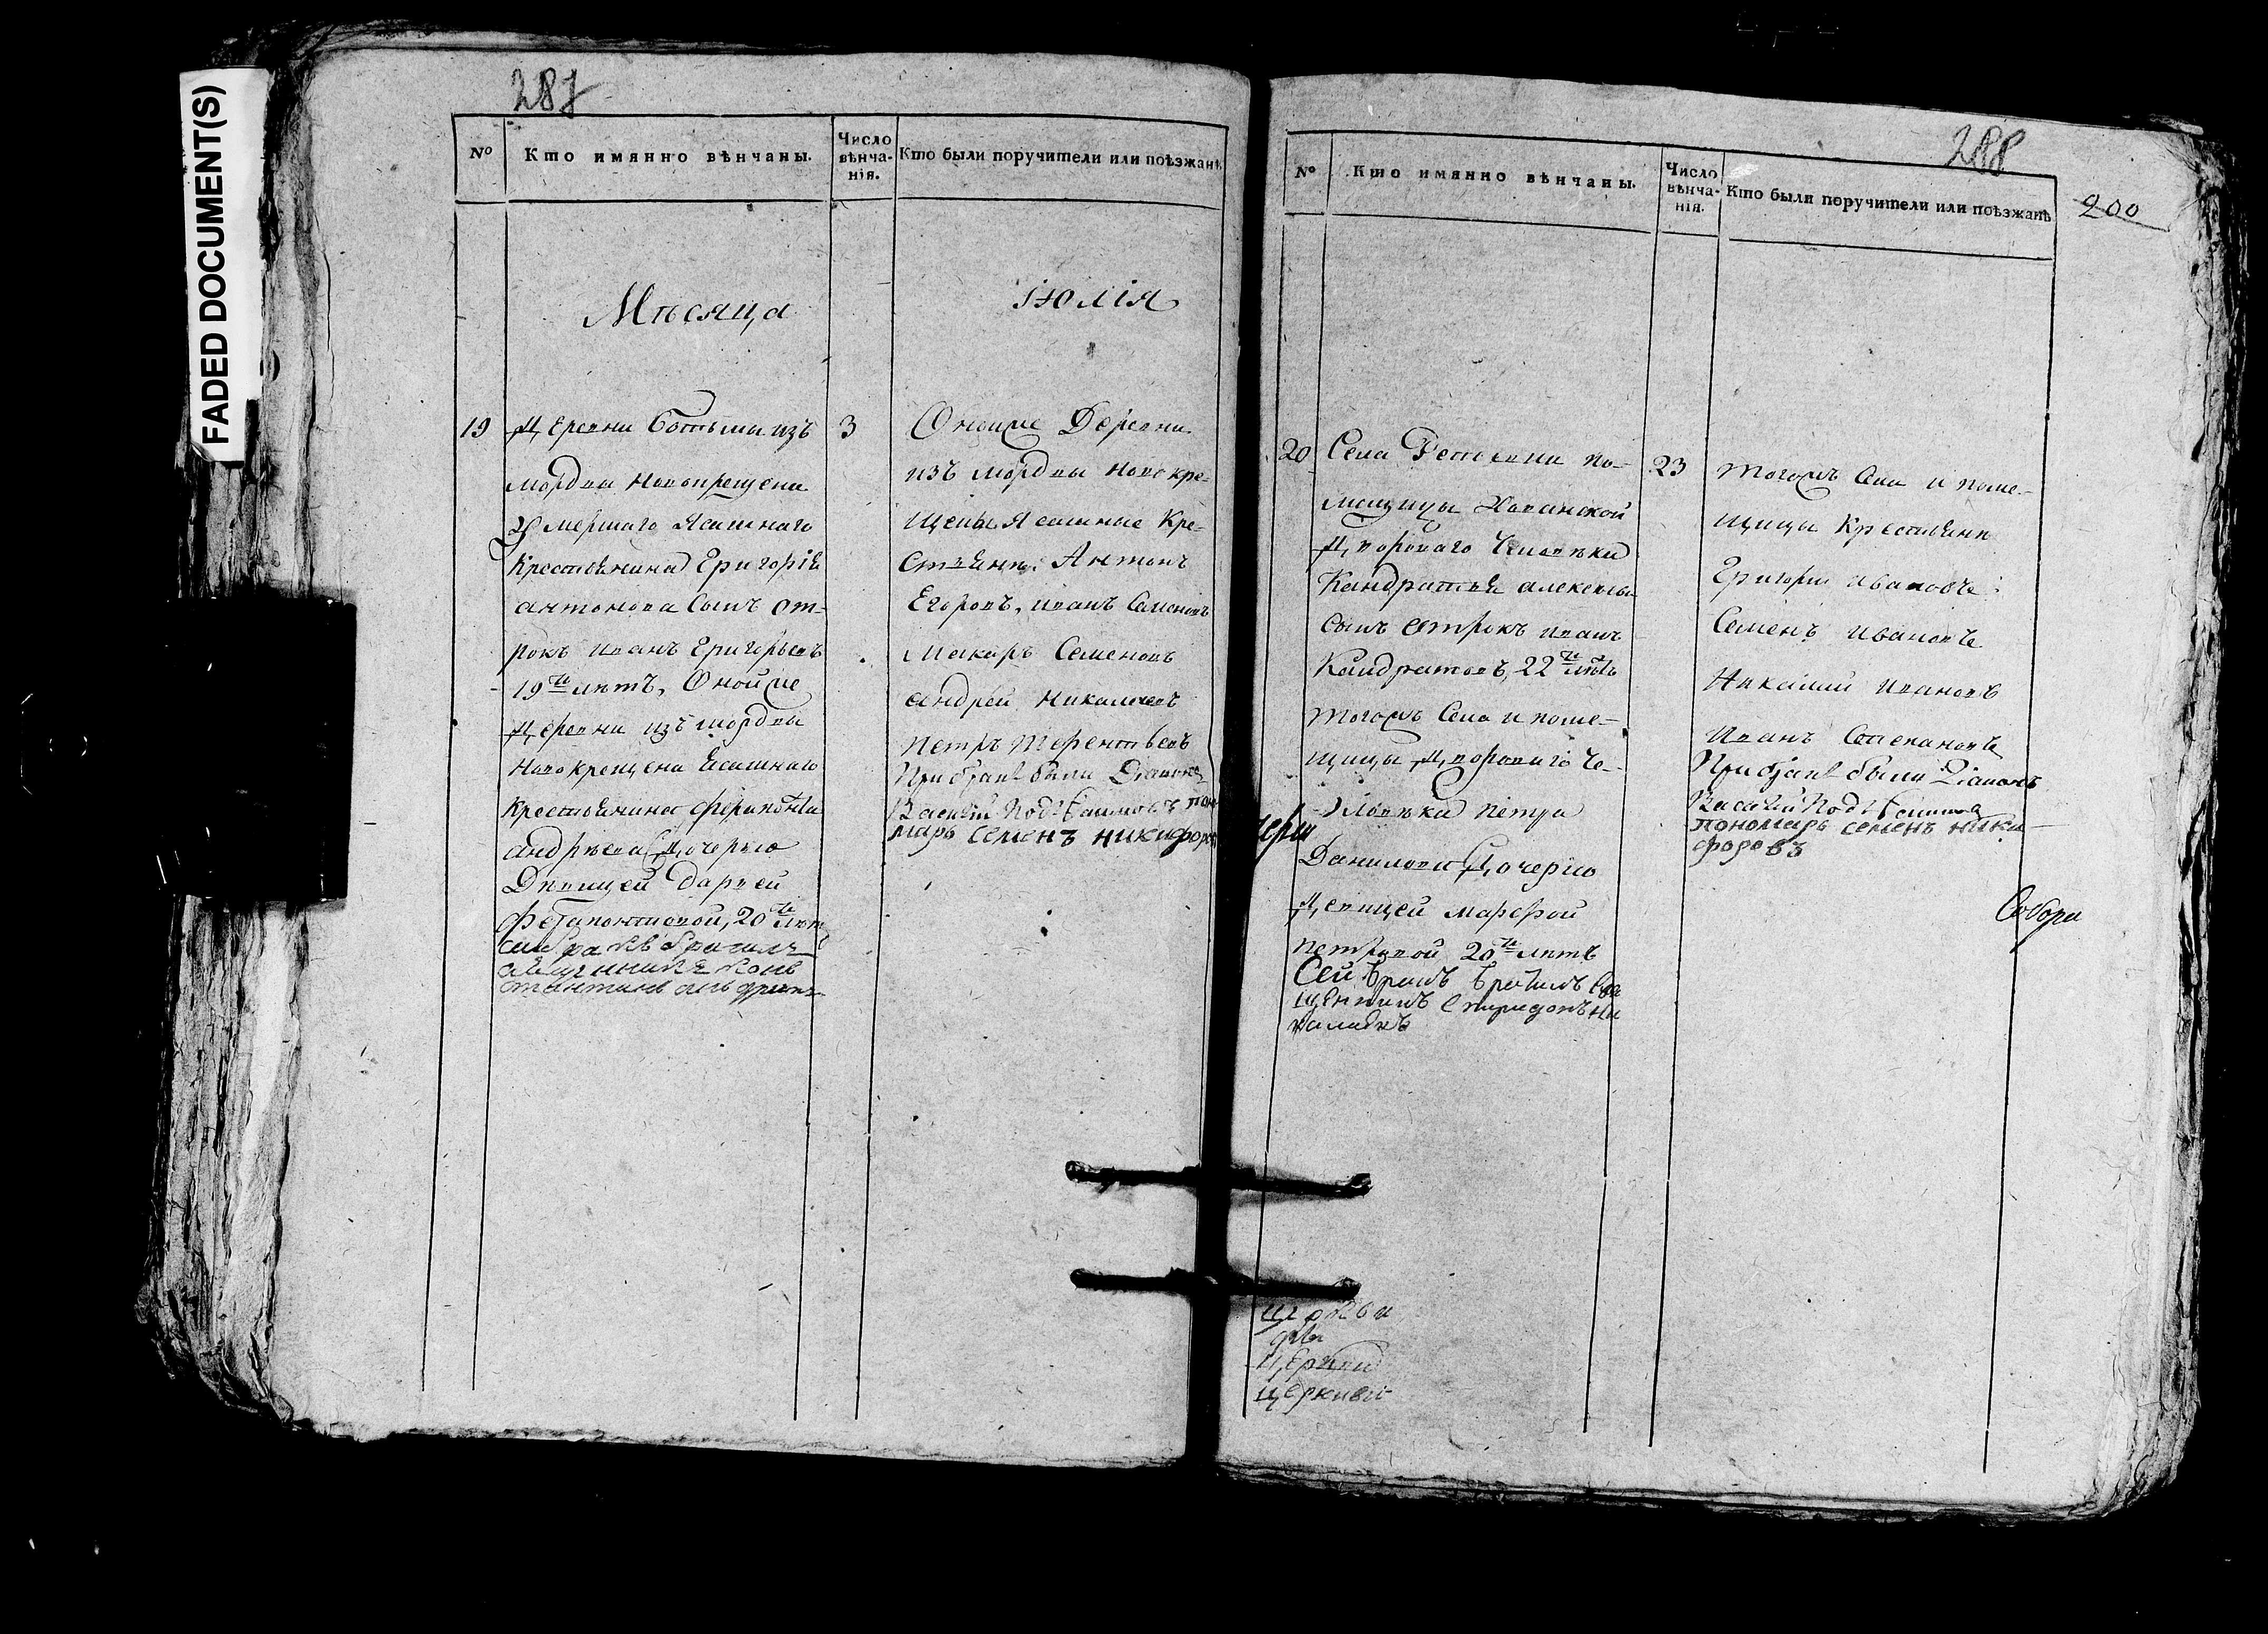 FADED DOCUMENT(S)
287
№ Кто имянно вѣнчаны. Число вѣнча-нія. Кто были поручители или поѣзжанѣ
Мѣсяца Іюлія
19 Деревни Ботьмы изъ 3
мордвы новокрещена
Умершаго Ясашнаго
крестьянина Григорія
антонова сынъ от-
рокъ иванъ Григорьевъ
19ти лѣтъ, Оной же
деревни изъ мордвы
новокрещена Ясашнаго
крестьянина ферапонта
андрѣева дочерью
Дѣвицей дарьей
ферапонтовой, 20ти лѣтъ
сей бракъ брачилъ
священникъ Конъ
стантинъ
Оной же Деревни
изъ мордвы новокре-
щены Ясашные кре-
стьяне: Антонъ
Егоровъ, иванъ Семеновъ
Макаръ Семеновъ
андрей Николаевъ
петръ Терентьевъ
При браке были Діаконъ
Василий Подъ поно
марь семенъ никифоровъ
288
200
№ Кто имянно вѣнчаны. Число вѣнча-нія. Кто были поручители или поѣзжанѣ
20 Села по- 23
мещицы
дворового человѣка
Кандратья алексѣева
сынъ отрокъ иванъ
Кандратовъ, 22ти лѣтъ
тогожъ села и поме-
щицы дворового че-
ловѣка петра
Данилова дочерью
дѣвицей марфой
петровой 20ти лѣтъ
Сей бракъ брачилъ свя
щенникъ спиридонъ ни
калаевъ
тогожъ села и поме-
щицы крестьяне
Григорий ивановъ
Семенъ ивановъ
Николай ивановъ
иванъ Степановъ
При браке были Діаконъ
Василий Подъ
пономарь семенъ ники-
форовъ
Собора
церкви
церкви